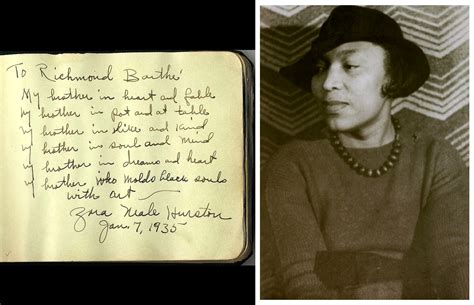 To Richmond Barthé
My brother in heart and fable
My brother in pot and at table
My brother in slike and kind
My brother in soul and mind
My brother in dreams and heart
My brother who molds black souls
with art
Zora Neale Hurston
Jan. 7, 1935